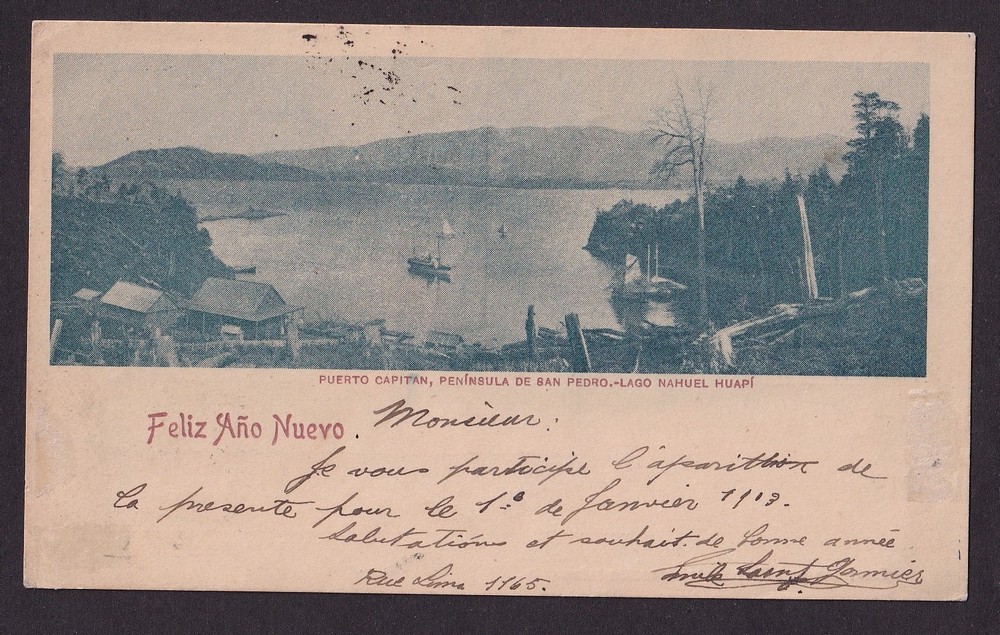 PUERTO CAPITAN, PENÍNSULA DE SAN PEDRO.-LAGO NAHUEL HUAPÍ
Feliz Año Nuevo. Monsieur:
Je vous participe l'aparittion de
la presente pour le 1.º de Janvier 1903.
Salutations et souhait de bonne année
Rue Lima 1165.